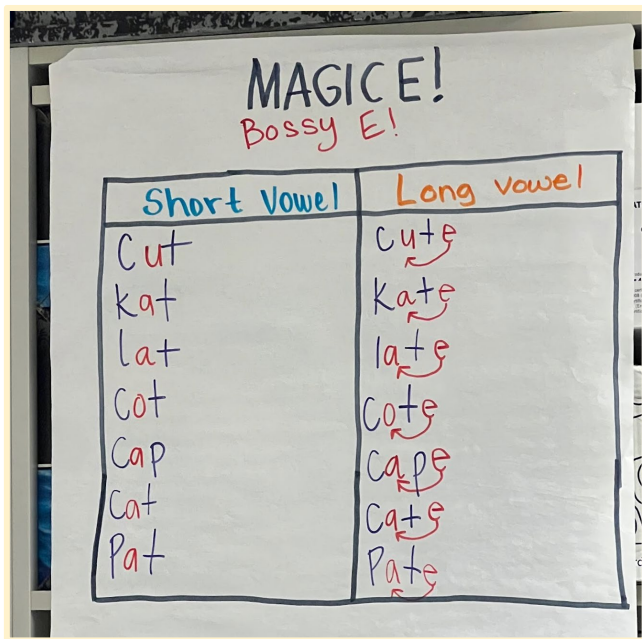 MAGIC E!
Bossy E!
Short Vowel Long vowel
Cut cute
kat Kate
lat late
Cot Cote
Cap Cape
Cat Cate
Pat Pate